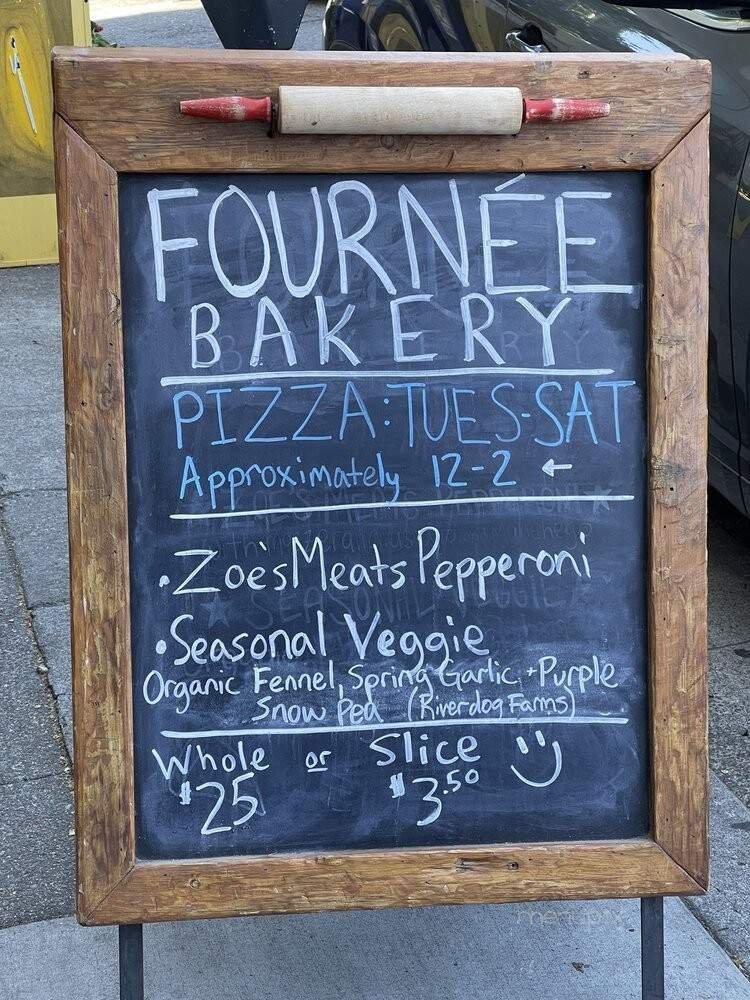 FOURNÉE
BAKERY
PIZZA: TUES-SAT
Approximately 12-2 ←
• Zoe's Meats Pepperoni
• Seasonal Veggie
Organic Fennel, Spring Garlic, + Purple
Snow Pea (Riverdog Farms)
Whole or Slice
$25 $3.50